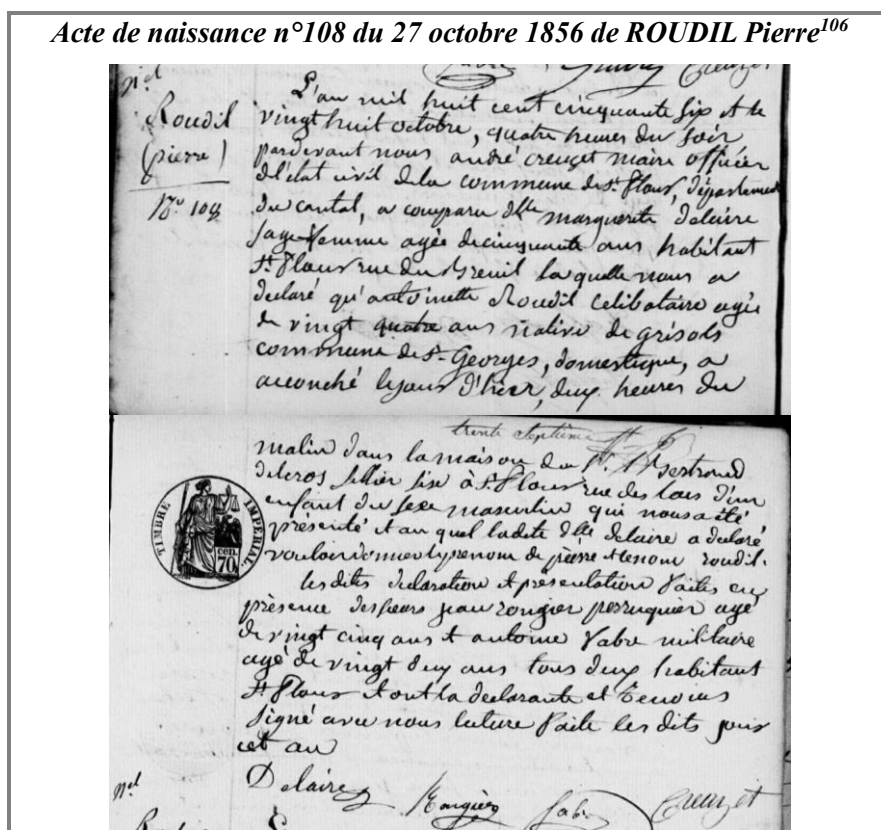 Acte de naissance n°108 du 27 octobre 1856 de ROUDIL Pierre106
nel
Roudil
(pierre)
No 108
L'an mil huit cent cinquante six et le
vingt huit octobre, quatre heures du soir
pardevant nous andré creuzet maire officier
de l'état civil de la commune de St flour, département
du cantal, a comparu dlle marguerite delaire
sage femme agée de cinquante ans habitant
St flour rue du breuil la quelle nous a
declaré qu'antoinette Roudil celibataire agée
de vingt quatre ans native de grisols
commune de St Georges, domestique, a
accouché le jour d'hier, deux heures du
trente septième
matin dans la maison du Sr Bertrand
delcros sellier sise à St flour rue des lacs d'un
enfant du sexe masculin qui nous a été
présenté et au quel ladite dlle delaire a declaré
vouloir donner le prenom de pierre et le nom roudil.
les dites declaration et presentation faites en
présence des sieurs jean rongier perruquier agé
de vingt cinq ans et antoine fabre militaire
agé de vingt deux ans tous deux habitant
St flour et ont la declarante et temoins
signé avec nous lecture faite les dits jour
et an
TIMBRE IMPERIAL
70 cen.
Delaire Rongier fabre Creuzet
nel